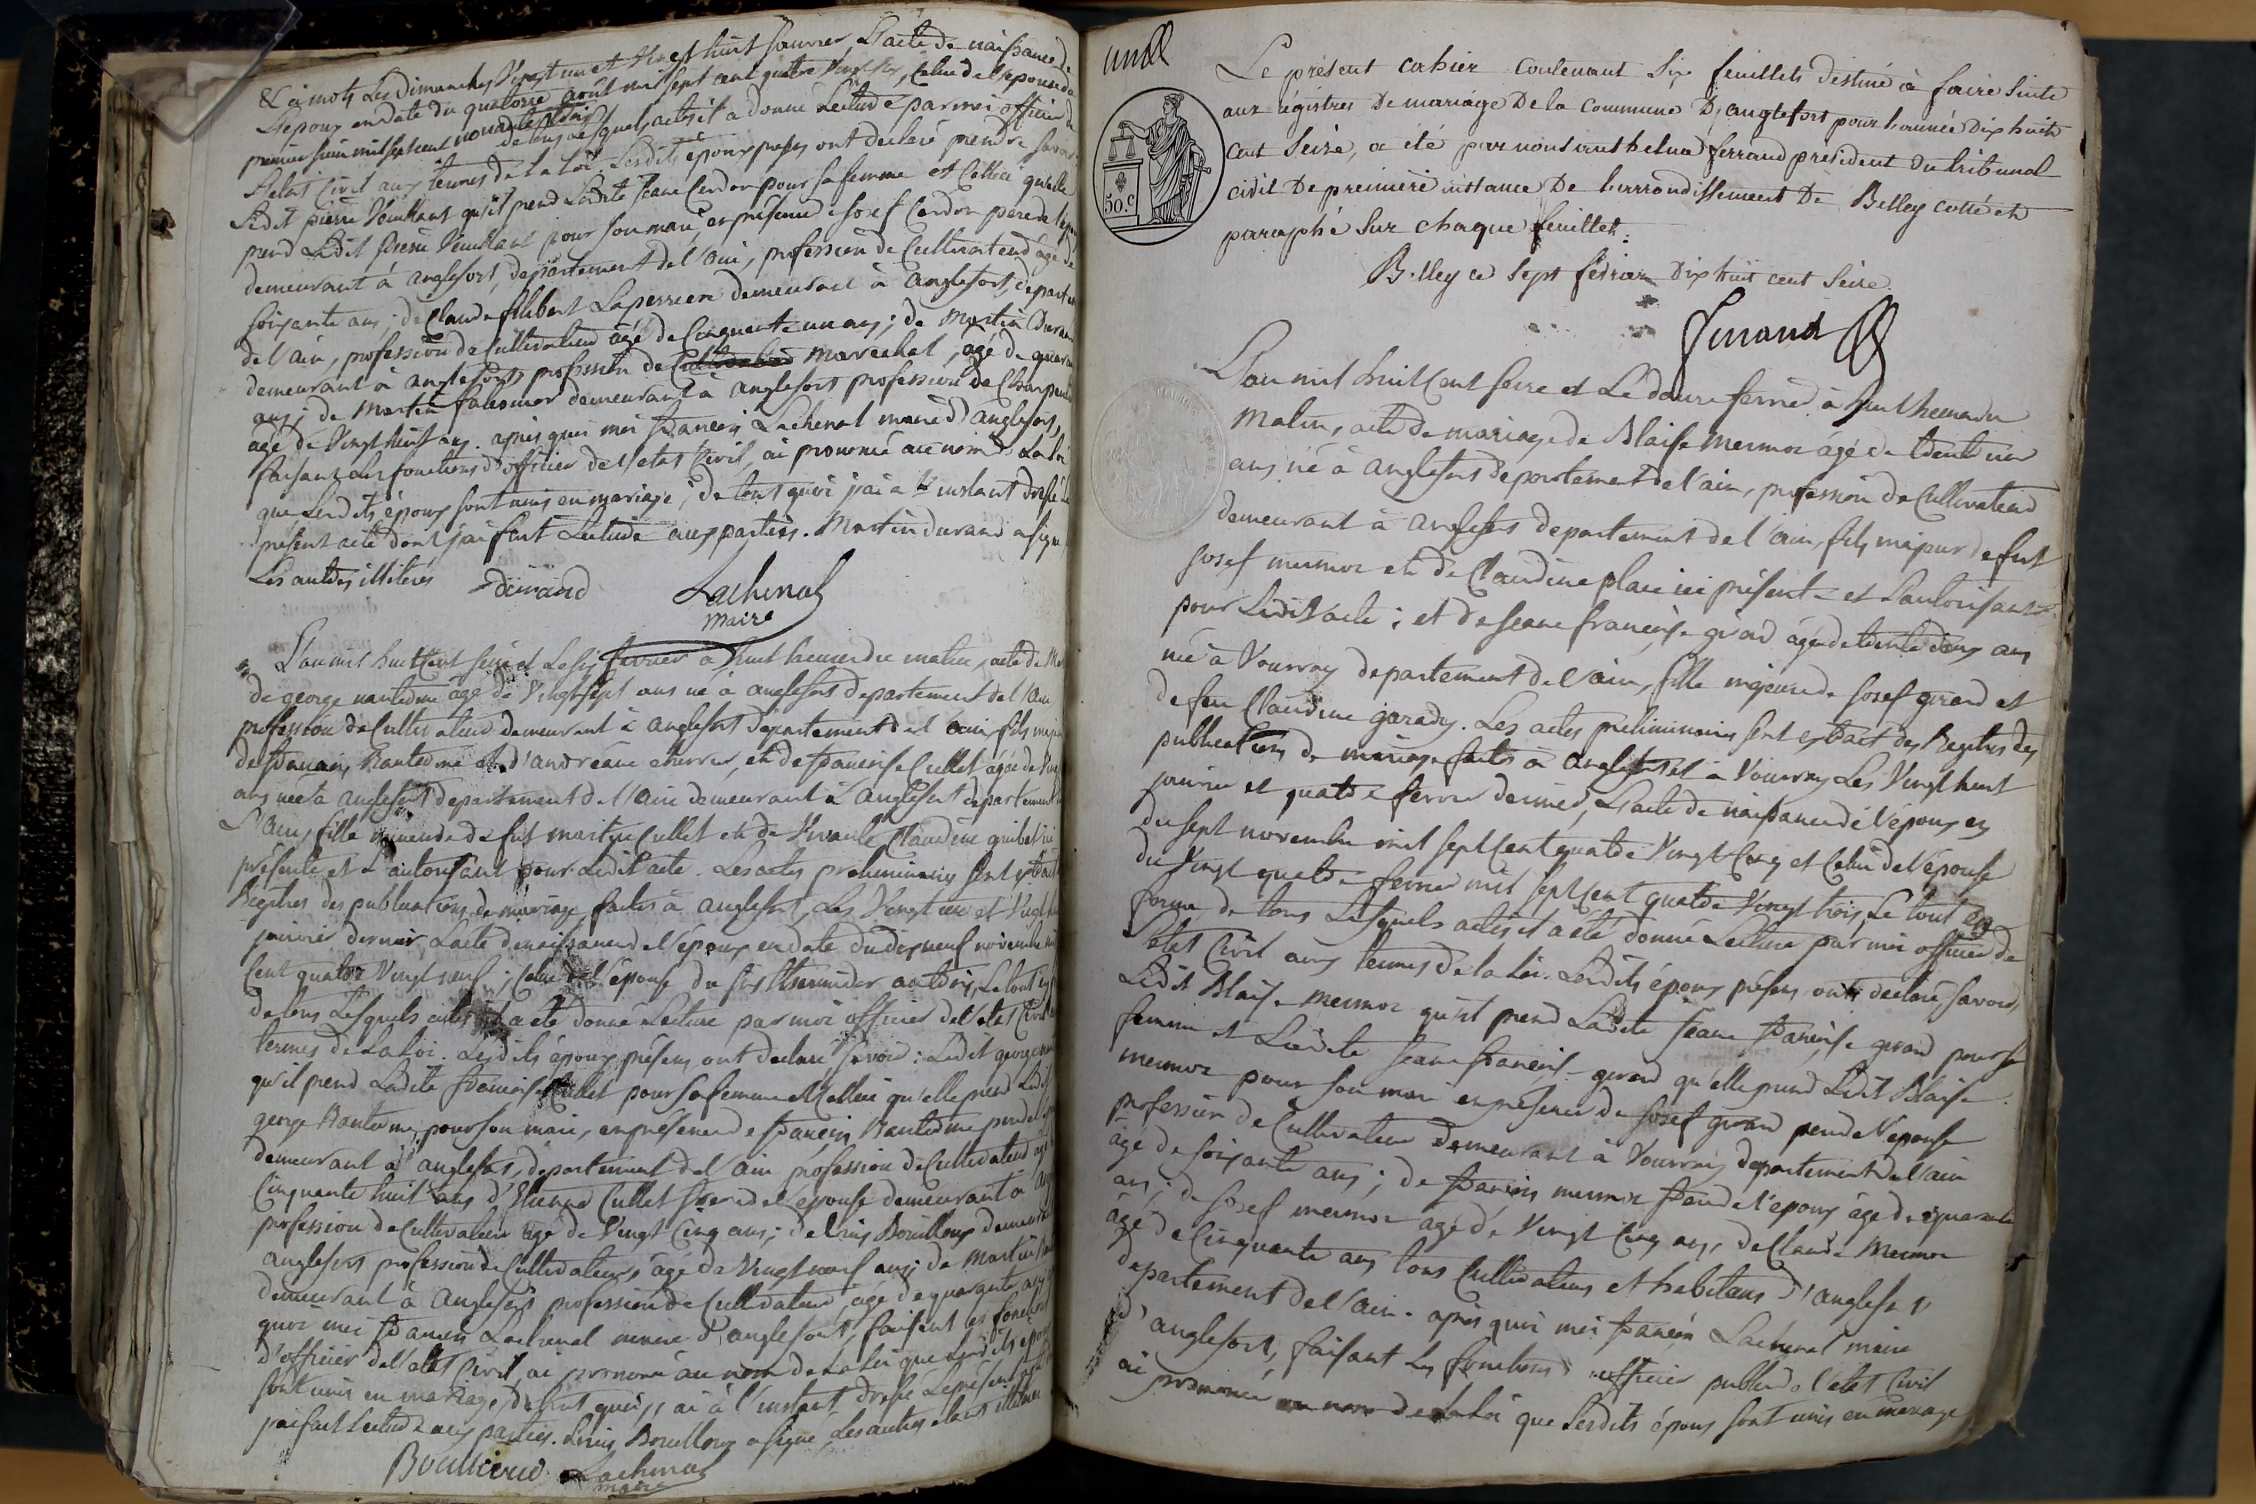 & à mots Les dimanches Vingt un et Vingt huit janvier L'acte de naissance de
L'époux en date du quatorze août mil sept cent quatre Vingt six, Celui de l'épouse du
premier juin mil sept cent nonante trois
de tous lesquels actes it a donné Lecture par moi officier de
l'état Civil aux termes de la Loi. Lesdits époux présens ont déclaré prendre savoir
Ledit pierre Veuillant qu'il prend Ladite jeane Cerdon pour sa femme et Celle ci qu'elle
prend Ledit pierre Veuillant pour son mari en présence de josef Cerdon père de l'épouse
demeurant à anglefort, département de l'ain, profession de Cultivateur âgé de
soixante ans; de Claude filibert Laperriere demeurant à anglefort, départ
de l'ain, profession de Cultivateur âgé de Cinquante un ans; de Martin Durand
demeurant à anglefort profession de Cultivateur marechal, âgé de quaran
ans; de Martin falconier demeurant à anglefort profession de Charpentier
âgé de Vingt huit ans. après quoi moi francois Lachenal maire d'anglefort,
faisant les fonctions d'officier de l'etat Civil, ai prononcé au nom de La Loi
que Lesdits époux sont unis en mariage; de tout quoi j'ai à l'instant dressé Le
présent acte dont j'ai fait Lecture aux parties. Martin durand a signé
Les autres illitérés durand Lachenal
maire
L'an mil huit Cent seize et Le six fevrier à huit heures du matin, acte de Ma
de george nanterme âgé de Vingt sept ans né à anglefort departement de l'ain
profession de Cultivateur demeurant à anglefort departement de l'ain, fils majeur
de francois Nanterme et d'andréane cherrer, et de francoise Cullet agée de Vin
ans née à anglefort departement de l'ain demeurant à anglefort departement
L'ain, fille mineure de fut Cullet et de Vivante Claudine ici
présente et L'autorisant pour Ledit acte. Les actes preliminaires sont extrait
Registres des publications de mariage faites à anglefort Les Vingt un et Vingt
janvier dernier, L'acte de naissance de l'époux en date du dix neuf novembre mil
Cent quatre Vingt neuf; Celui de l'épouse du six an trois, Le tout en
de tous Lesquels actes it a été donné Lecture par moi officier de l'etat Civil
termes de La Loi. Lesdits époux présens ont déclaré savoir: Ledit george
qu'il prend Ladite francoise Cullet pour sa femme et Celle ci qu'elle prend Ledit
george Nanterme pour son mari, en présence de francois Nanterme père de
demeurant à anglefort, departement de l'ain profession de Cultivateur
Cinquante huit ans d'Etienne Cullet frere de l'épouse demeurant à
profession de Cultivateur âgé de Vingt Cinq ans; de Louis Bouilloux demeurant
anglefort profession de Cultivateur, âgé de Vingt neuf ans; de Martin
demeurant à Anglefort profession de Cultivateur, âgé de quarante ans
quoi moi francois Lachenal maire d'anglefort, faisant les fonctions
d'officier de l'etat Civil, ai prononcé au nom de La Loi que Lesdits époux
sont unis en mariage, de tout quoi, j'ai à l'instant dressé Le présent
j'ai fait Lecture aux parties. Louis Bouilloux a signé, Les autres étant illitérés
Lachenal
maire
Le présent cahier contenant Six feuillets destiné à faire Suite
aux régistres De mariage De la commune D'anglefort pour l'année Dix huit
cent Seize, a été par nous anthelme ferrand président du tribunal
civil De première instance De L'arrondissement De Belley cotté et
paraphé Sur chaque feuillet.
Belley ce Sept février Dix huit cent Seize.
ferrand
50. c
L'an mil huit Cent seize et Le douze fevrier à huit heures du
Matin, acte de mariage de Blaise mermoz âgé de trente un
ans né à anglefort departement de l'ain, profession de Cultivateur
demeurant à anglefort departement de l'ain, fils majeur de fut
josef mermoz et de Claudine ici présente et L'autorisant
pour Ledit acte; et de jeane francoise girard âgée de trente deux ans
née à Vourray departement de l'ain, fille majeure de josef girard et
de feu Claudine. Les actes preliminaires sont extrait des Registres des
publications de mariage faites à anglefort et à Vourray Les Vingt huit
janvier et quatre fevrier dernier, L'acte de naissance de l'époux en
du sept novembre mil sept Cent quatre Vingt Cinq et Celui de l'épouse
du Vingt quatre fevrier mil sept Cent quatre Vingt trois, Le tout en
forme, de tous Lesquels actes it a été donné Lecture par moi officier de
l'etat Civil aux termes de la Loi. Lesdits époux présens ont déclaré, savoir,
Ledit Blaise mermoz qu'il prend Ladite jeane francoise girard pour sa
femme et Ladite jeane francoise girard qu'elle prend Ledit Blaise
mermoz pour son mari en présence de josef girard père de l'épouse
profession de Cultivateur demeurant à Vourray departement de l'ain
âgé de soixante ans; de francois mermoz frere de l'époux âgé de quarante
ans; de josef mermoz âgé de Vingt Cinq ans, de Claude Mermoz
âgé de Cinquante ans tous Cultivateurs et habitans d'anglefort
departement de l'ain. après quoi moi francois Lachenal maire
d'anglefort, faisant les fonctions d'officier public de l'etat Civil
ai prononcé au nom de La Loi que Lesdits époux sont unis en mariage